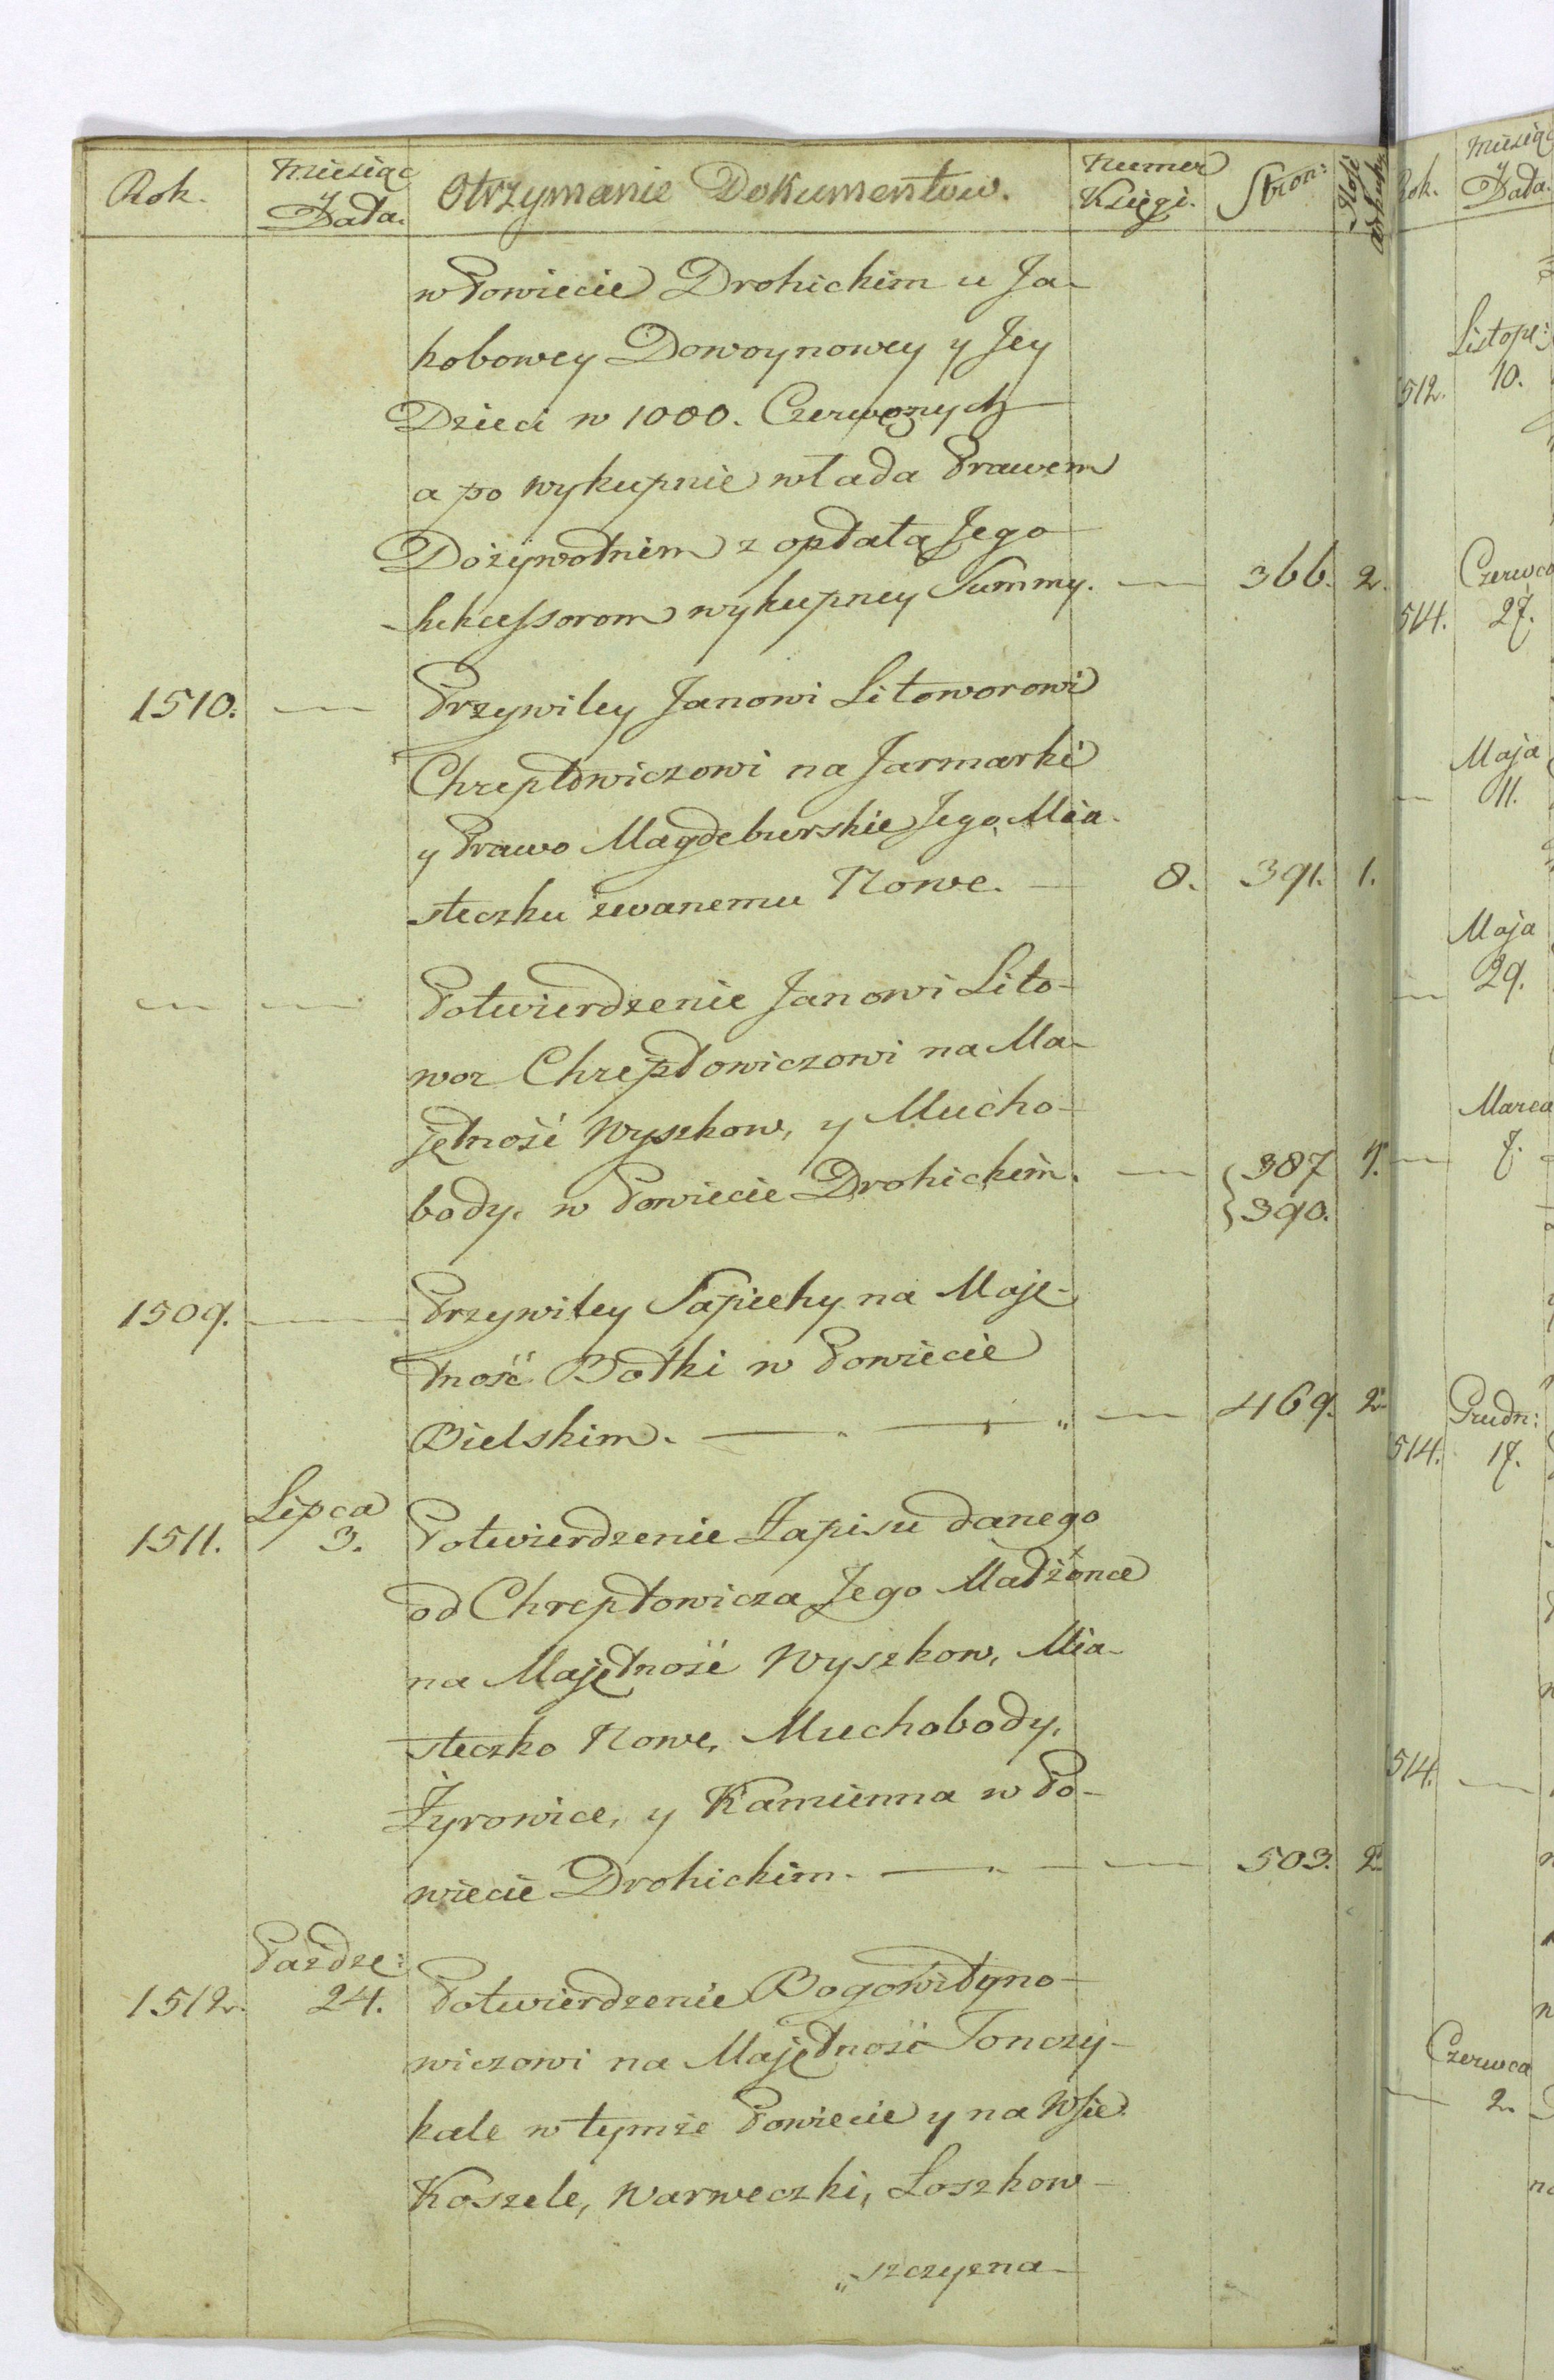 Rok. Miesiąc y Data. Otrzymanie Dokumentow. Numer Księgi. Stron: Ilość arkuszy
w Powiecie Drohickim u Ja-
kobowey Dowoynowey y Jey
Dzieci w 1000. Czerwonych
a po wykupnie włada Prawem
Dożywotnim z opłatą Jego
sukcessorom wykupney Summy. — 366. 2.
1510. — Przywiley Janowi Litoworowi
Chreptowiczowi na Jarmarki
y Prawo Magdeburskie Jego Mia-
steczku zwanemu Nowe. — 8. 391. 1.
— — Potwierdzenie Janowi Lito-
wor Chreptowiczowi na Ma-
jętność Wyszkow, y Mucho-
body, w Powiecie Drohickim. — 387 1.
390.
1509. — Przywiley Sapiehy na Maję-
tność Botki w Powiecie
Bielskim. — — 469. 2.
Lipca
1511. 3. Potwierdzenie Zapisu danego
od Chreptowicza Jego Małżonce
na Majętność Wyszkow, Mia-
steczko Nowe, Muchobody,
Żyrowice, y Kamienna w Po-
wiecie Drohickim. — — 503. 2.
Paźdze:
1512. 24. Potwierdzenie Bogowityno-
wiczowi na Majętność Tonczy-
kale w tymże Powiecie y na Wsie
Koszele, Warweczki, Łoszkow-
„szczyzna-
Rok. Miesiąc y Data.
Listop:
512. 10.
Czerwca
514. 27.
Maja
— 11.
Maja
— 29.
Marca
— 7.
Grudn:
514. 17.
514. —
Czerwca
— 2.